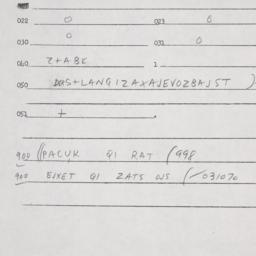 022 0 023 0
030 0 031 0
040 Z+ABE 1
050 DGS+LANGIZAXAJEVOZBAJST )
052 + .
900 ((PACUK QI RAT (998
900 EIXET QI ZATS OJS (/031070